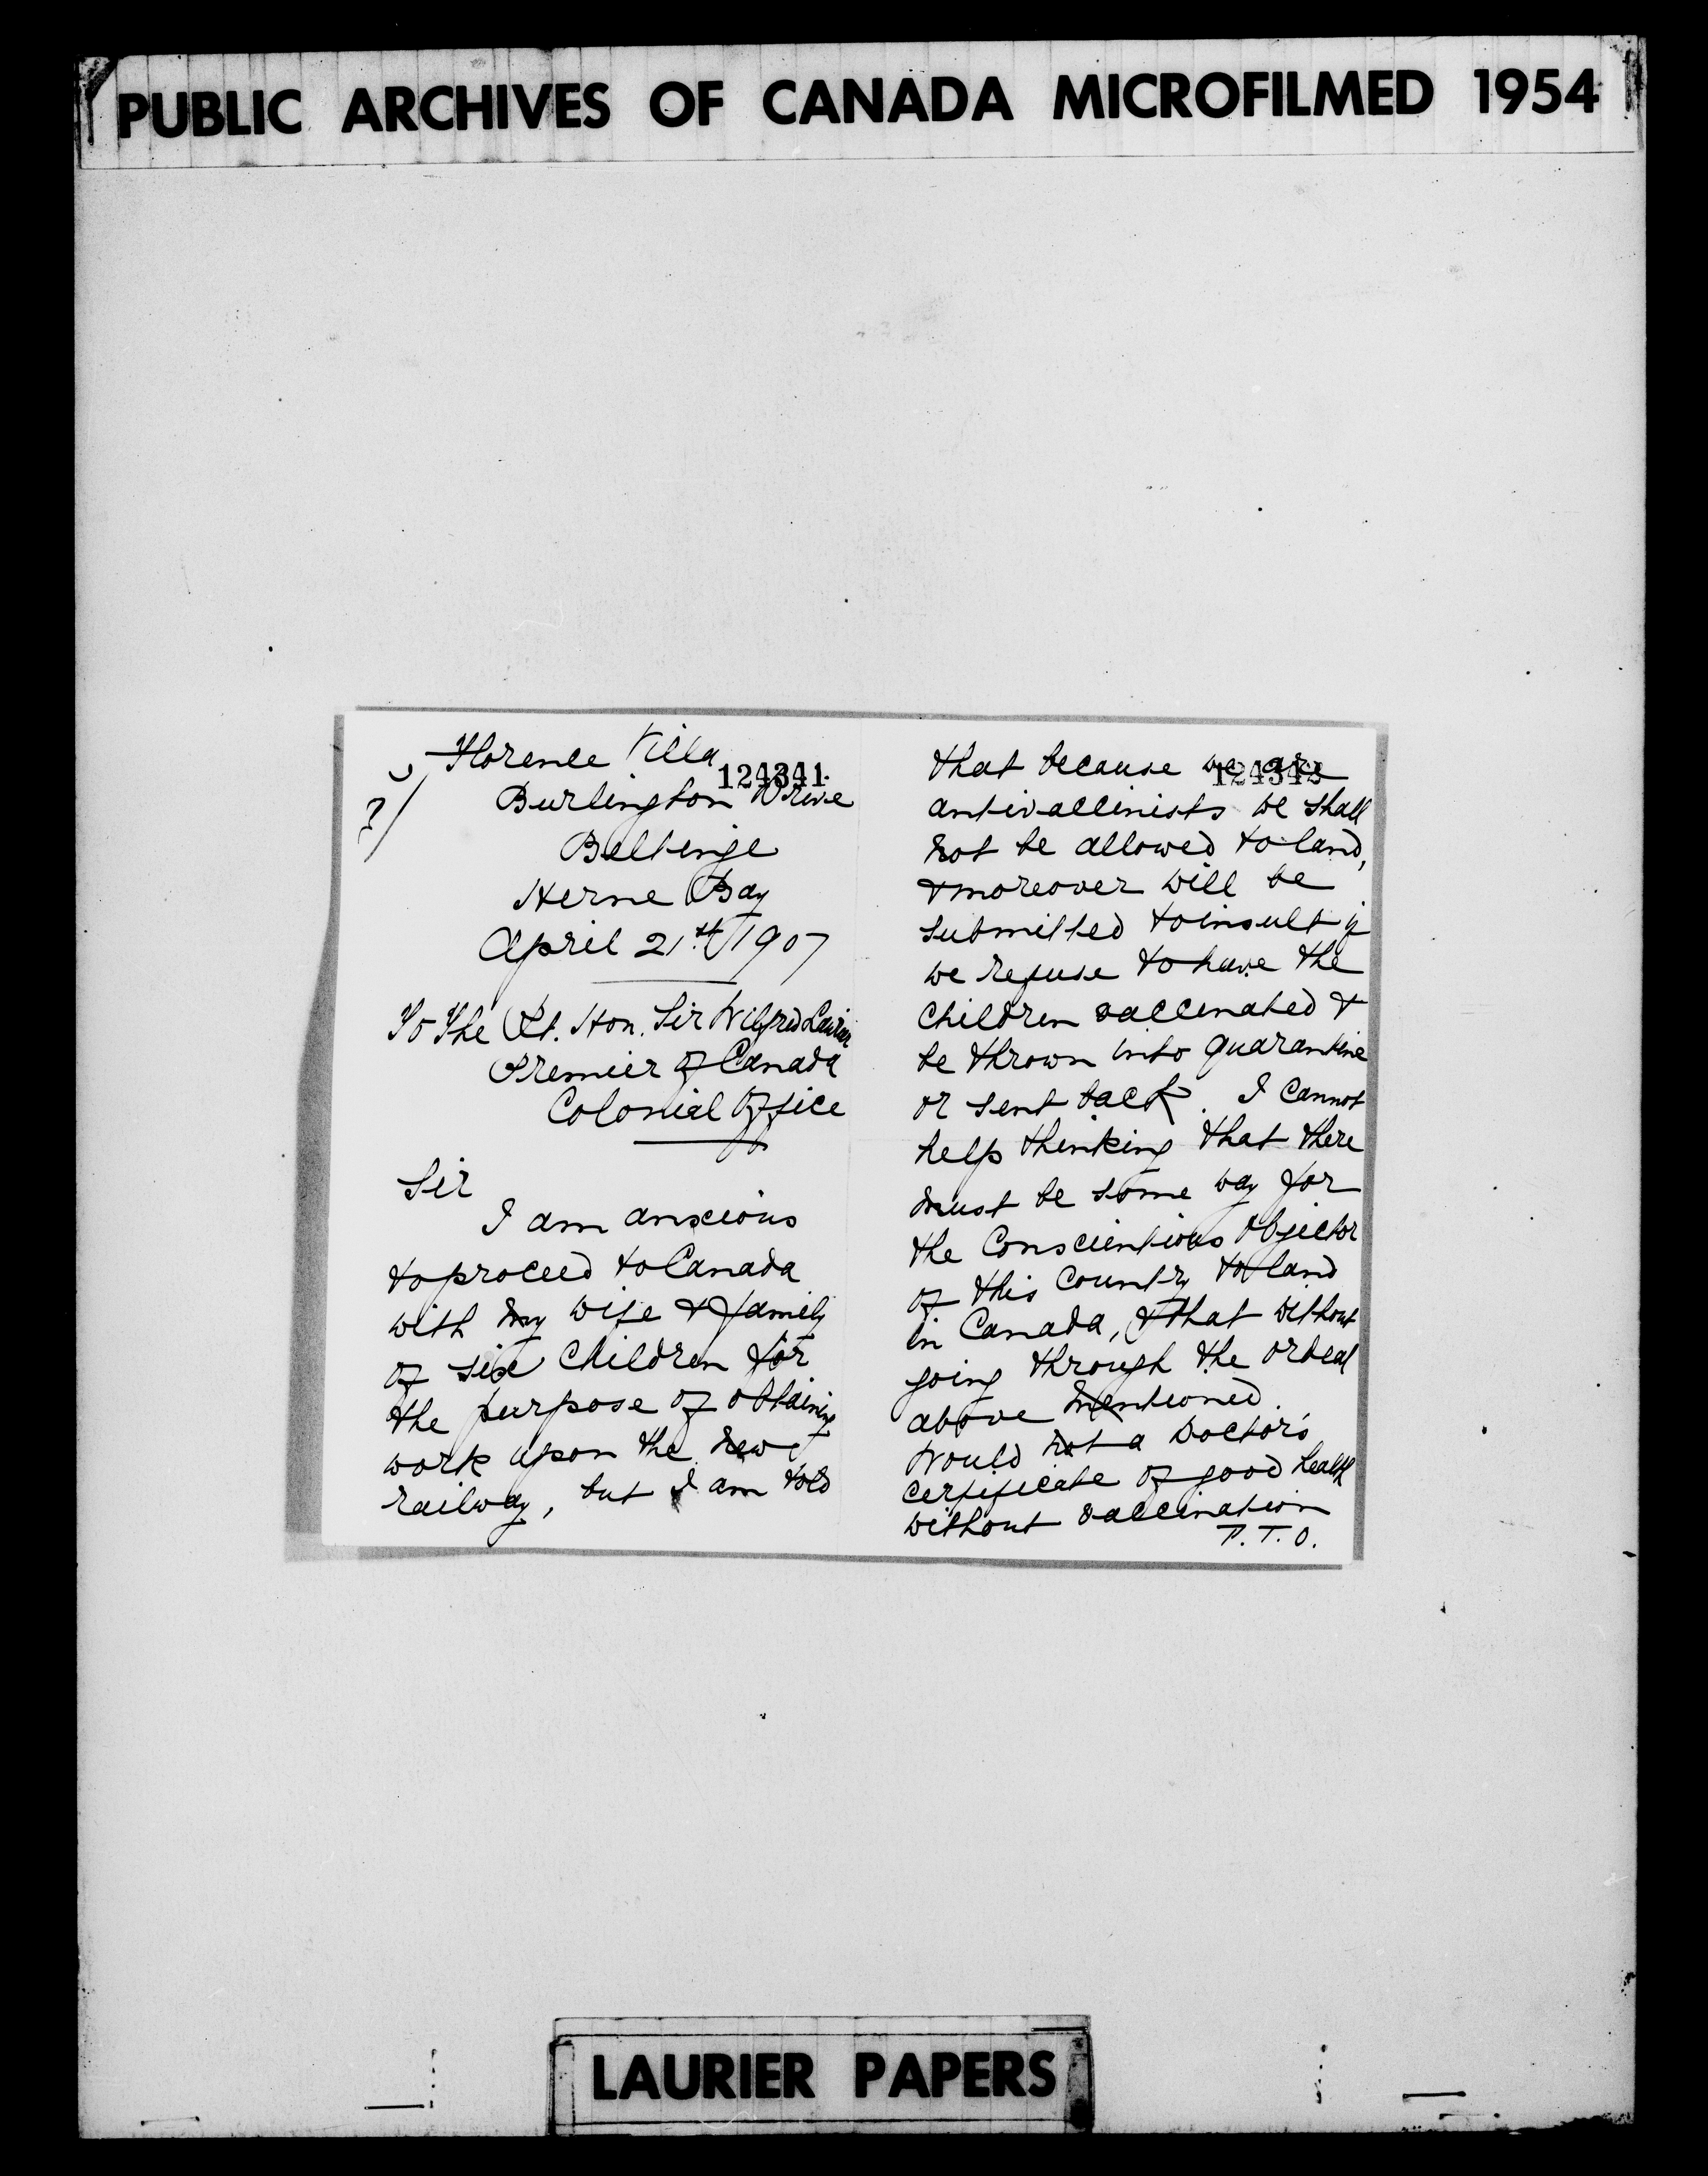 PUBLIC ARCHIVES OF CANADA MICROFILMED 1954
Florence Villa
124341
Burlington Drive
Beltinge
Herne Bay
April 21st 1907
To The Rt. Hon. Sir Wilfred Laurier
Premier of Canada
Colonial Office
Sir
I am anxious
to proceed to Canada
with my wife & family
of six children for
the purpose of obtaining
work upon the new
railway, but I am told
124342
that because we are
antivaccinists we shall
not be allowed to land,
& moreover will be
submitted to insult if
we refuse to have the
children vaccinated &
be thrown into quarantine
or sent back. I cannot
help thinking that there
must be some way for
the Conscientious Objector
of this Country to land
in Canada, & that without
going through the ordeal
above mentioned.
Would not a Doctor's
certificate of good health
without vaccination
P.T.O.
LAURIER PAPERS